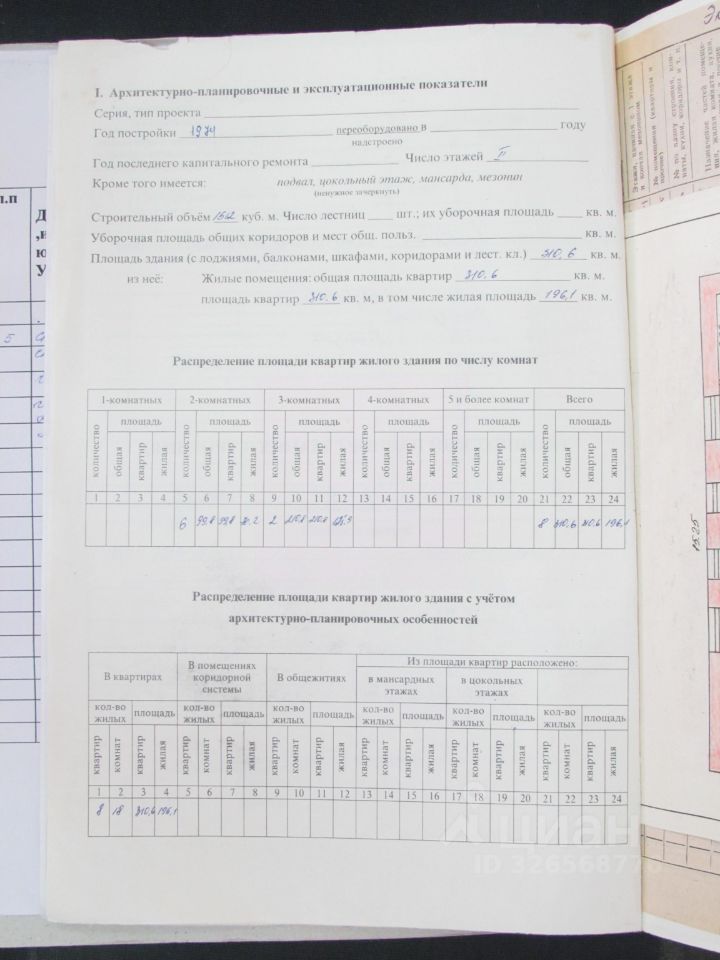 I. Архитектурно-планировочные и эксплуатационные показатели
Серия, тип проекта
Год постройки 1974 переоборудовано в году
надстроено
Год последнего капитального ремонта Число этажей II
Кроме того имеется: подвал, цокольный этаж, мансарда, мезонин
(ненужное зачеркнуть)
Строительный объём куб. м. Число лестниц шт.; их уборочная площадь кв. м.
Уборочная площадь общих коридоров и мест общ. польз. кв. м.
Площадь здания (с лоджиями, балконами, шкафами, коридорами и лест. кл.) 310,6 кв. м.
из неё: Жилые помещения: общая площадь квартир 310,6 кв. м.
площадь квартир 310,6 кв. м, в том числе жилая площадь 196,1 кв. м.
Распределение площади квартир жилого здания по числу комнат
1-комнатных 2-комнатных 3-комнатных 4-комнатных 5 и более комнат Всего
количество площадь количество площадь количество площадь количество площадь количество площадь количество площадь
общая квартир жилая общая квартир жилая общая квартир жилая общая квартир жилая общая квартир жилая общая квартир жилая
1 2 3 4 5 6 7 8 9 10 11 12 13 14 15 16 17 18 19 20 21 22 23 24
6 99,8 99,8 2 210,8 210,8 8 310,6 310,6 196,1
Распределение площади квартир жилого здания с учётом
архитектурно-планировочных особенностей
В квартирах В помещениях коридорной системы В общежитиях Из площади квартир расположено:
в мансардных этажах в цокольных этажах
кол-во жилых площадь кол-во жилых площадь кол-во жилых площадь кол-во жилых площадь кол-во жилых площадь кол-во жилых площадь
квартир комнат квартир жилая квартир комнат квартир жилая квартир комнат квартир жилая квартир комнат квартир жилая квартир комнат квартир жилая квартир комнат квартир жилая
1 2 3 4 5 6 7 8 9 10 11 12 13 14 15 16 17 18 19 20 21 22 23 24
8 18 310,6 196,1
15.25
циан